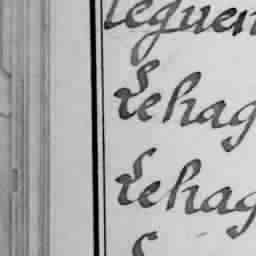 leguen
Lehag
Lehag